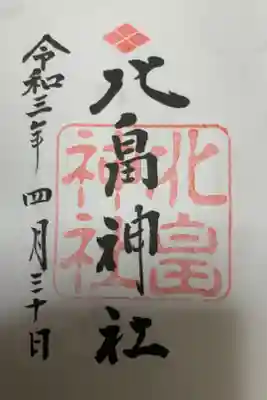 北畠神社
北畠
神社
令和三年 四月三十日